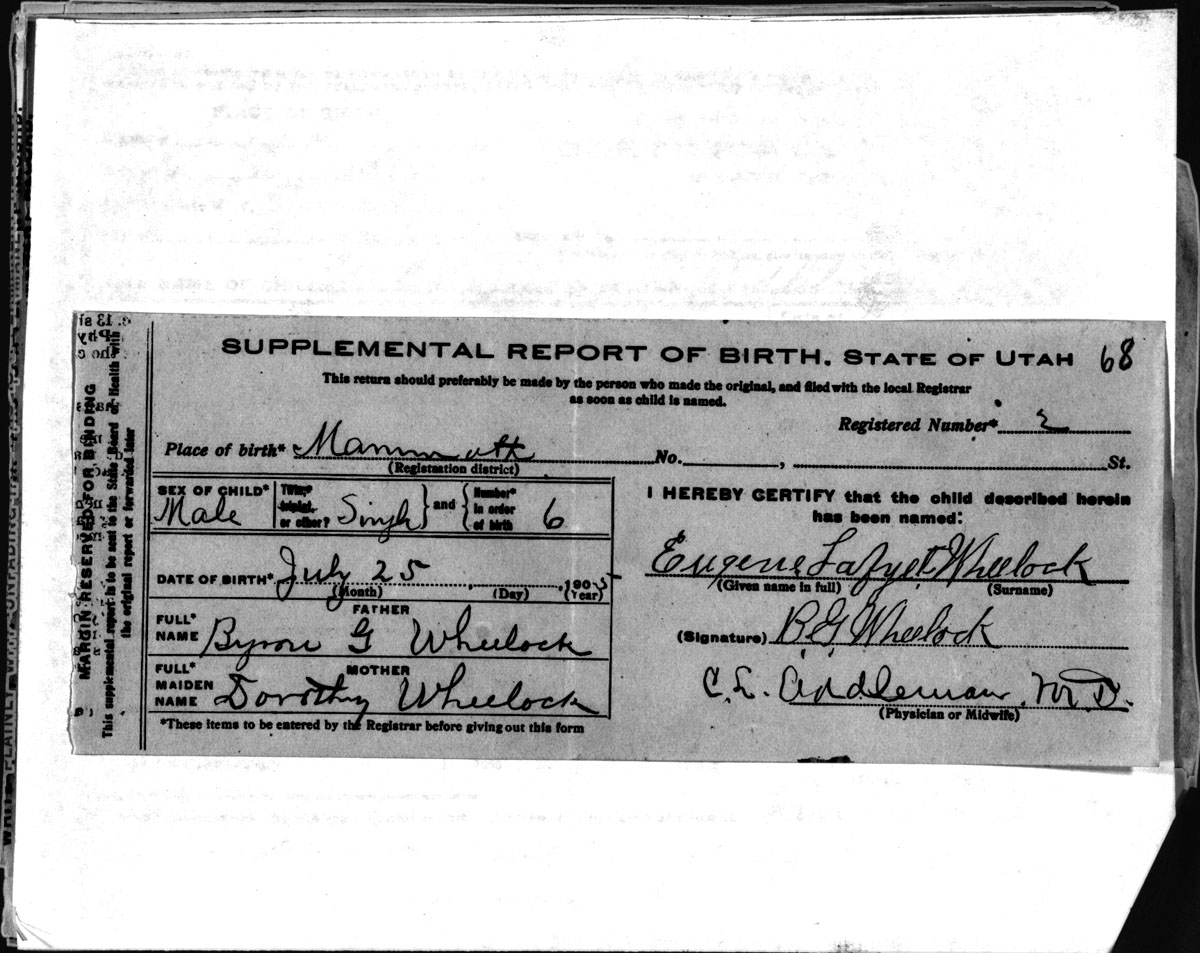 SUPPLEMENTAL REPORT OF BIRTH. STATE OF UTAH 68
This return should preferably be made by the person who made the original, and filed with the local Registrar
as soon as child is named.
Registered Number* 2
Place of birth* Mammoth No. , St.
(Registration district)
SEX OF CHILD* Male
Twin,* triplet, or other? Single and Number* in order of birth 6
DATE OF BIRTH* July 25, , 190
(Month) (Day) (Year)
FATHER
FULL* NAME Byron G Wheelock
MOTHER
FULL* MAIDEN NAME Dorothy Wheelock
*These items to be entered by the Registrar before giving out this form
I HEREBY CERTIFY that the child described herein
has been named:
Eugene Lafyet Wheelock
(Given name in full) (Surname)
(Signature) B G Wheelock
C. L. Addleman, M.D.
(Physician or Midwife)
MARGIN RESERVED FOR BINDING
This supplemental report to be sent to the State Board of Health with
the original report or forwarded later